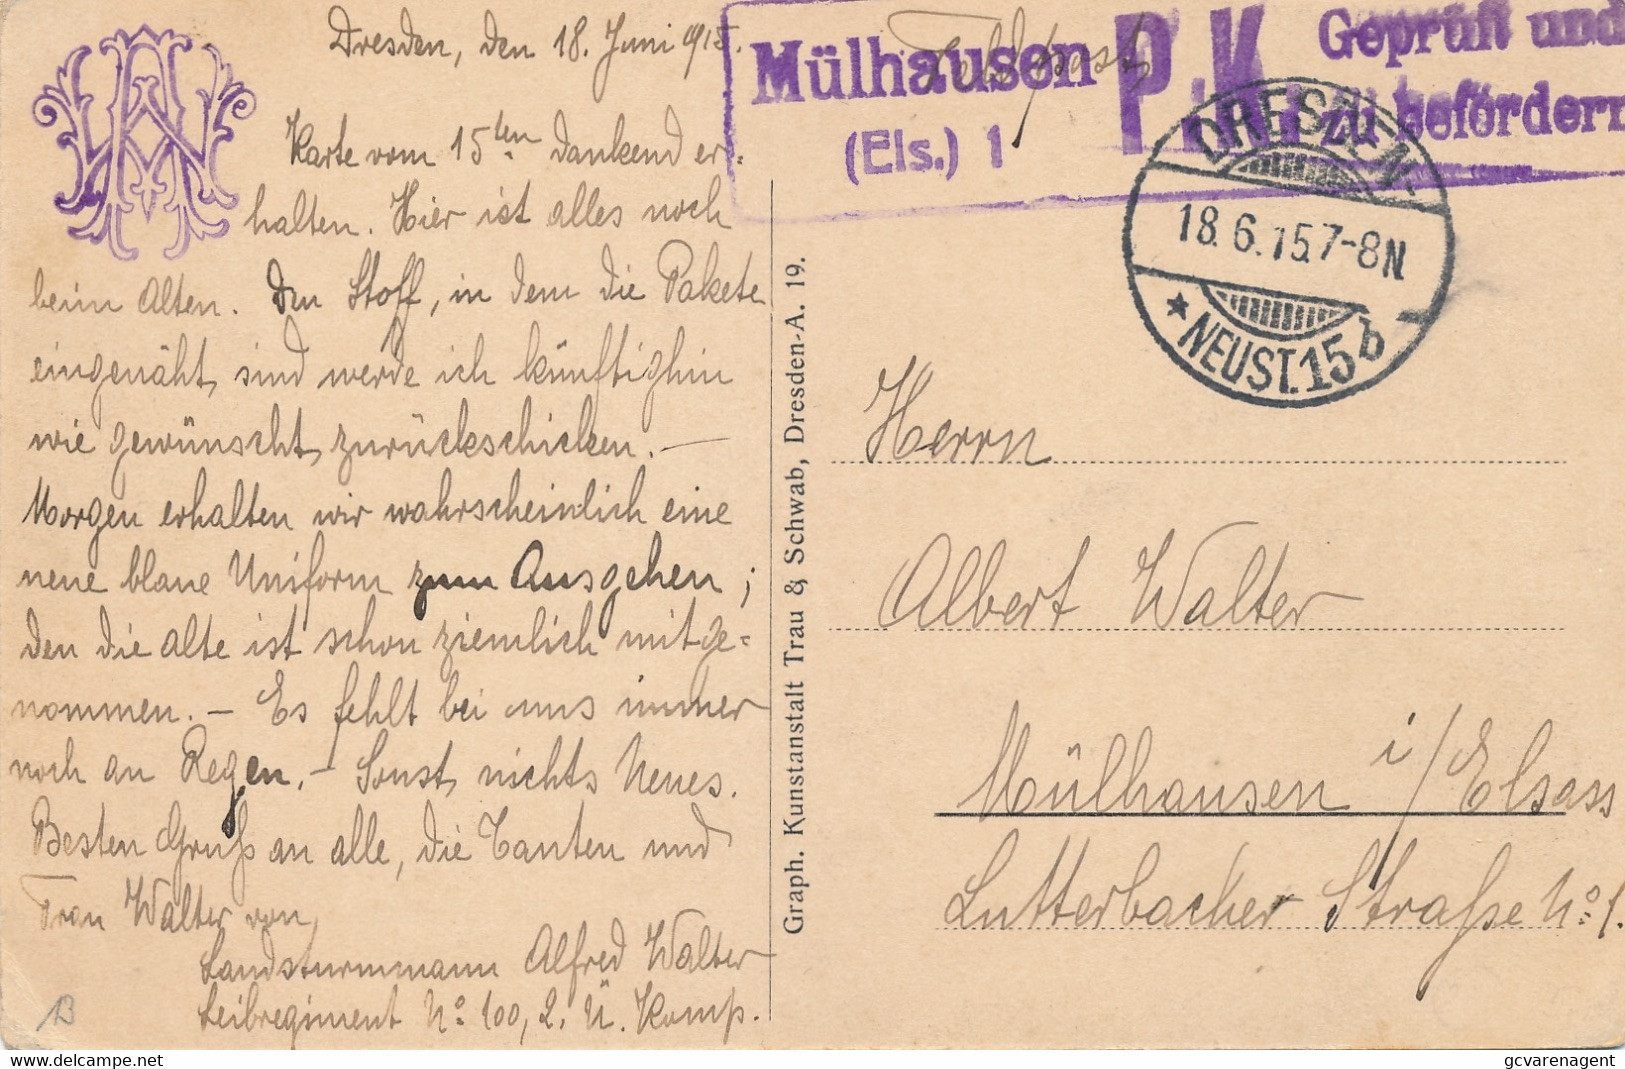 Dresden, den 18. Juni 1915.
Karte vom 15ten dankend er-
halten. Hier ist alles noch
beim Alten. Den Stoff, in dem die Pakete
eingenäht sind werde ich künftighin
wie gewünscht zurückschicken. —
Morgen erhalten wir wahrscheinlich eine
neue blaue Uniform zum Ausgehen;
den die alte ist schon ziemlich mitge=
nommen. — Es fehlt bei uns immer
noch an Regen. — Sonst nichts Neues.
Besten Gruß an alle, die Tanten und
Frau Walter von
Landsturmmann Alfred Walter
Leibregiment No 100, 2. Ü. Komp.
B
Graph. Kunstanstalt Trau & Schwab, Dresden-A. 19.
Feldpost
Mülhausen
(Els.) 1
P.K.
Geprüft und
zu befördern
DRESDEN-
18.6.15.7-8N.
* NEUST.15 b
Herrn
Albert Walter
Mülhausen i/Elsass
Lutterbacher Straße No 1.
gcvarenagent
https://www.delcampe.net